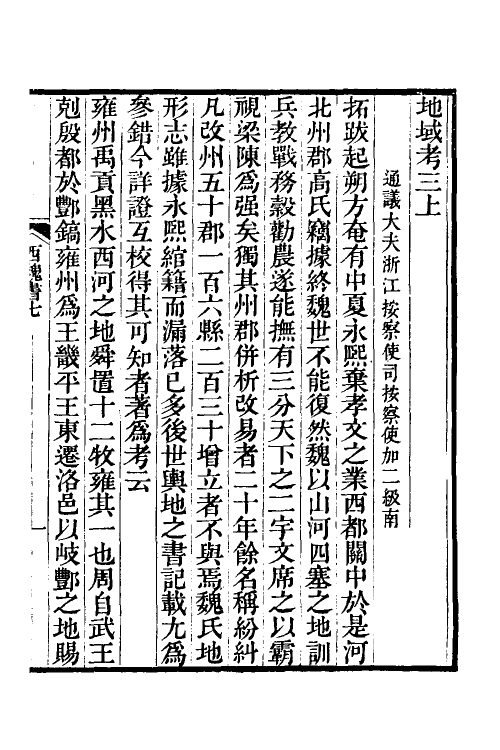 地域考三上
通議大夫浙江按察使司按察使加二級南
拓跋起朔方奄有中夏永熙棄孝文之業西都關中於是河
北州郡高氏竊據終魏世不能復然魏以山河四塞之地訓
兵教戰務穀勸農遂能撫有三分天下之二宇文席之以霸
視梁陳為强矣獨其州郡併析改易者二十年餘名稱紛糾
凡改州五十郡一百六縣二百三十增立者不與焉魏氏地
形志雖據永熙綰籍而漏落已多後世輿地之書記載尤為
參錯今詳證互校得其可知者著為考云
雍州禹貢黑水西河之地舜置十二牧雍其一也周自武王
剋殷都於酆鎬雍州為王畿平王東遷洛邑以岐酆之地賜
西魏書七
一